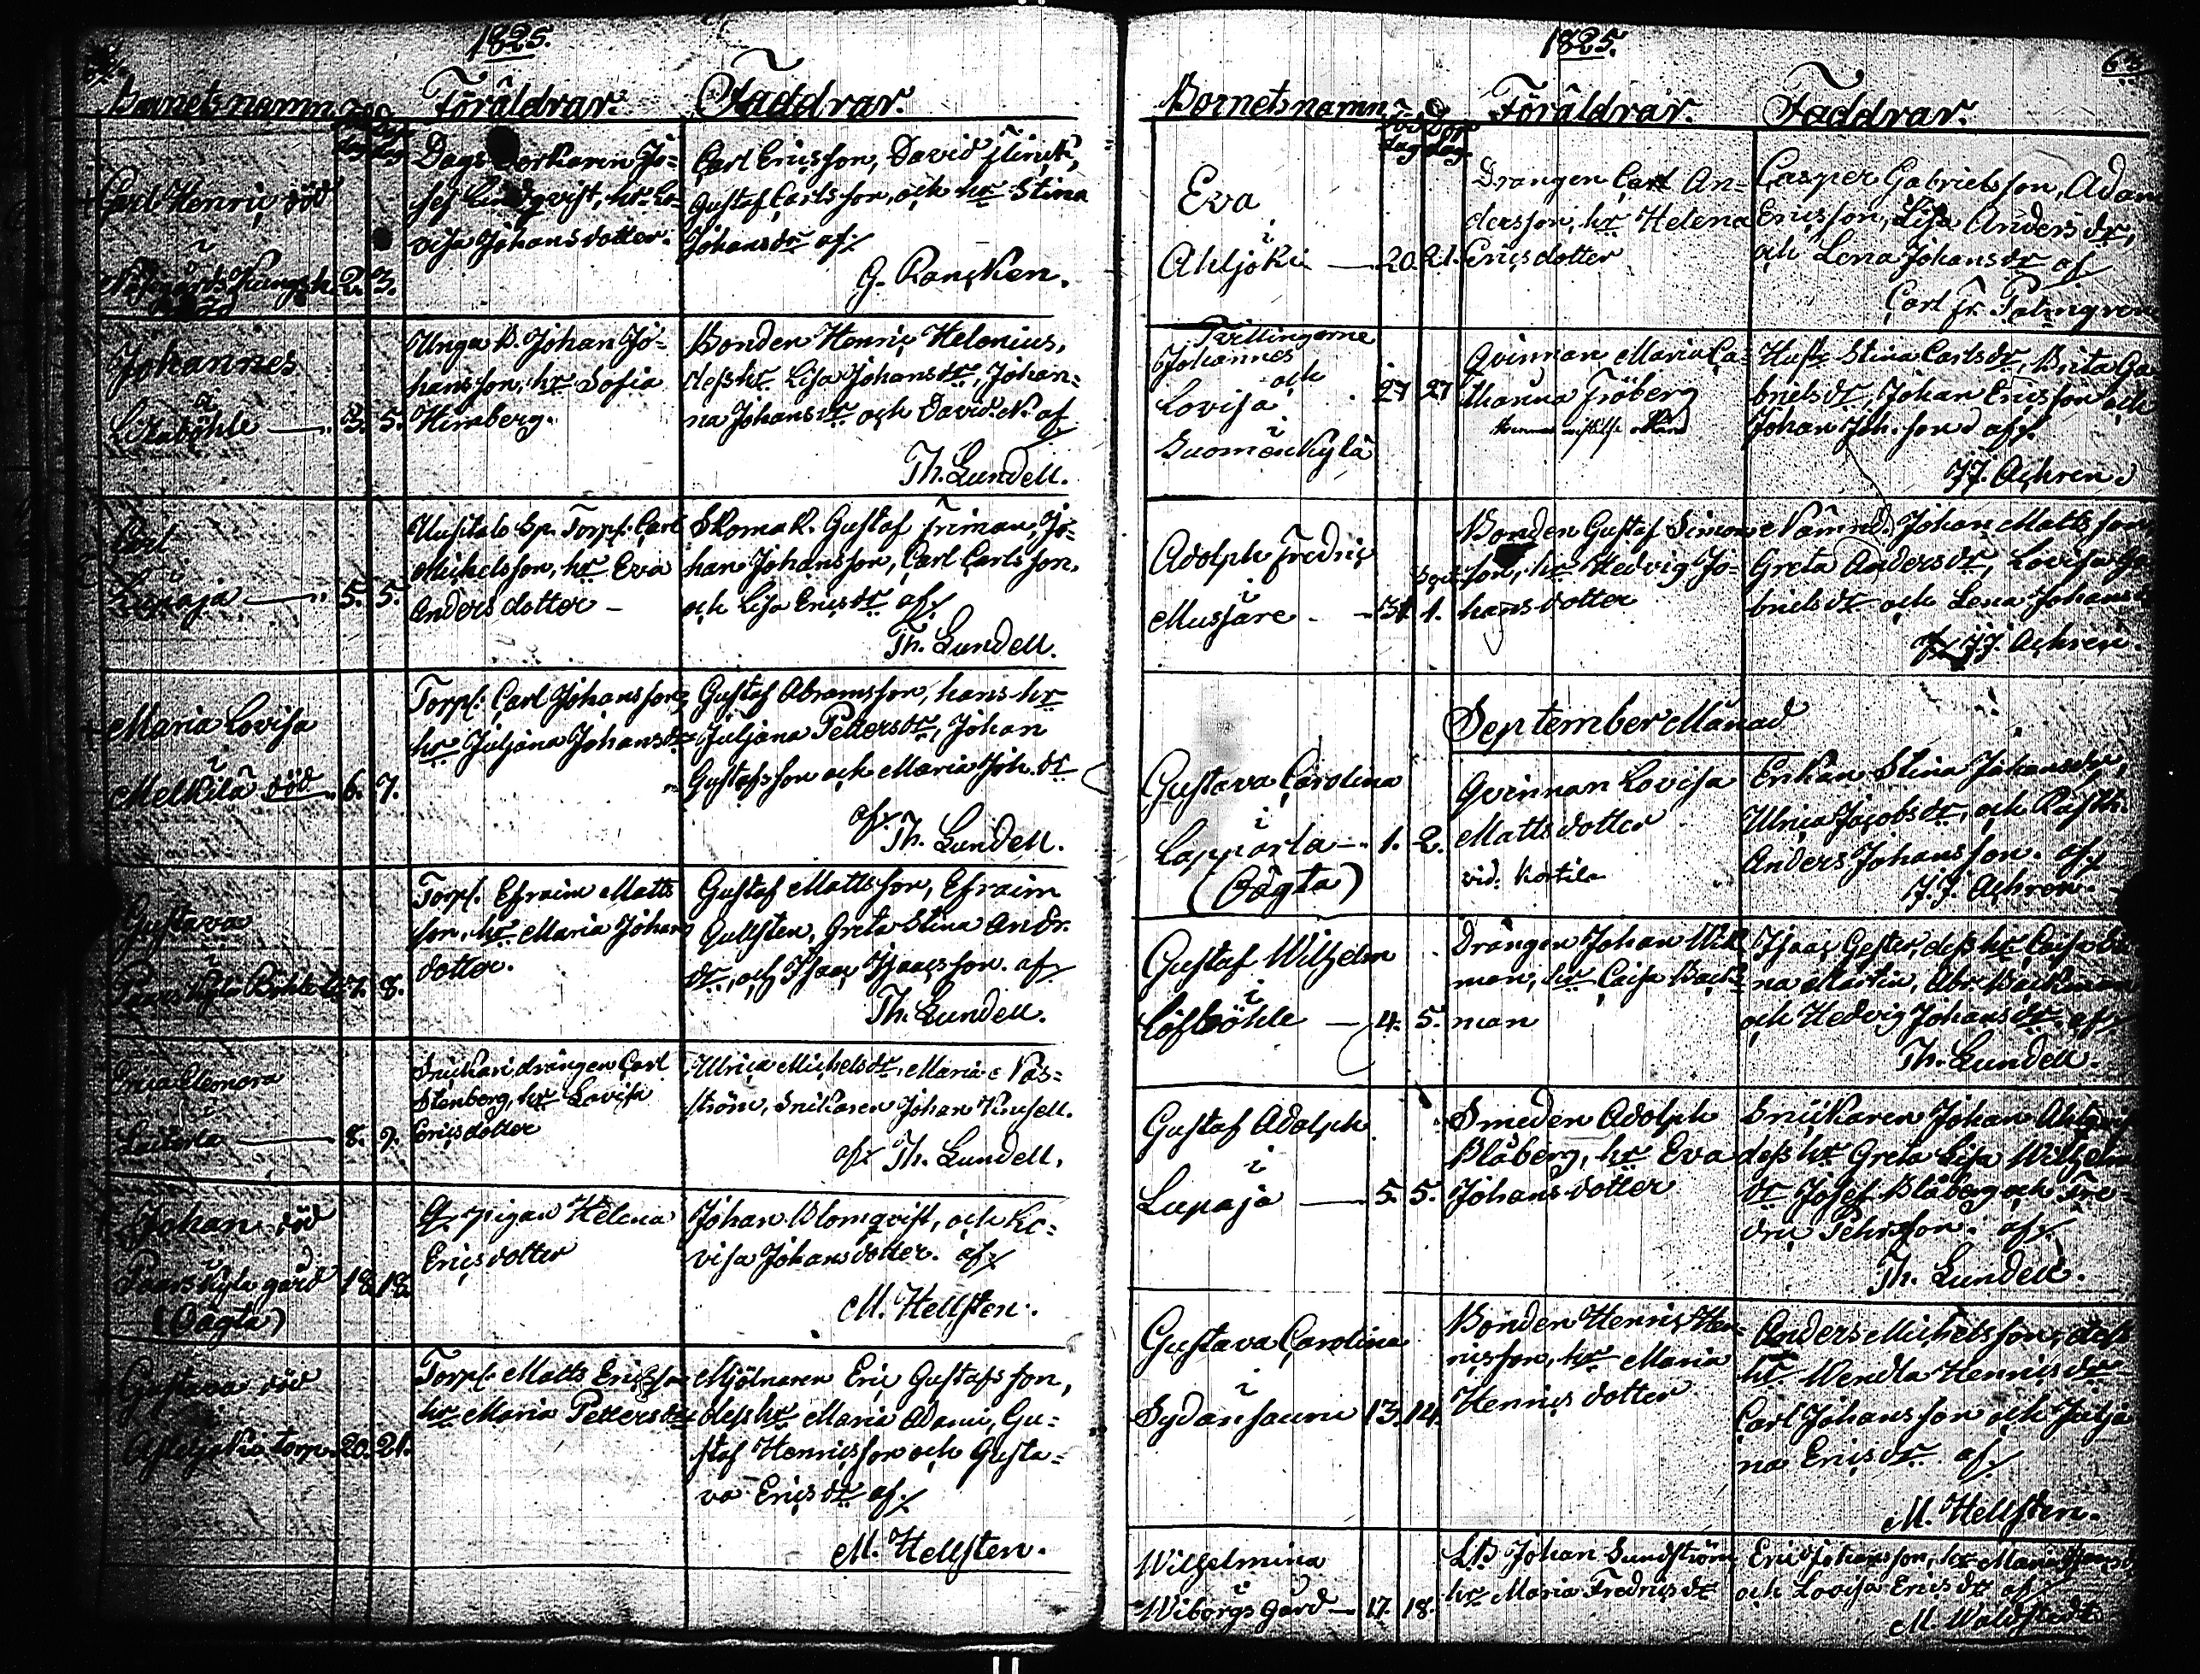 1825.
Barnets namn. Föräldrar. Faddrar.
Carl Henric död
i
2. 3.
Dags karen Jo=
sef Lindqvist, hr Lo=
visa Johansdotter.
Carl Ericsson, David Flinck,
Gustaf Carlsson, och hr Stina
Johansdr af
G. Rancken.
Johannes
i
3. 5.
Unga B. Johan Jo=
hansson, hr Sofia
Himberg.
Bonden Henric Helonius,
dess hr Lisa Johansdr, Johan=
na Johansdr och David N. af
Th. Lundell.
Carl
i
Lupaja 5. 5.
Torpf. Carl
Michelsson, hr Eva
Andersdotter
Skomak. Gustaf Friman, Jo=
han Johansson, Carl Carlsson,
och Lisa Ericsdr af
Th. Lundell.
Maria Lovisa
i
Melkilä död 6. 7.
Torpf. Carl Johansson,
hr Juljana Johansdr
Gustaf Abramsson, hans hr
Juljana Pettersdr, Johan
Gustafsson och Maria Joh. dr
af
Th. Lundell.
Gustava
i
7. 8.
Torpf. Efraim Matts
son, hr Maria Johans
dotter.
Gustaf Mattsson, Efraim
Gullsten, Greta Stina Andr.
dr, och Isaac Isaacsson. af
Th. Lundell.
Erica Eleonora
i
8. 9.
Snickari drängen Carl
Stenberg, hr Lovisa
Ericsdotter
Ulrica Michelsdr, Maria Näs=
ström, Snikaren Johan
af Th. Lundell.
Johan död
i
Paarskylä gård 18. 18.
(Oägta)
Q. pigan Helena
Ericsdotter
Johan Blomqvist, och Lo=
visa Johansdotter. af
M. Hellsten.
Gustava död
i
Ahljoki torp. 20. 21.
Torpf. Matts Ericsson
hr Maria Pettersdr
Mjölnaren Eric Gustafsson,
dess hr Maria Adami, Gu=
staf Henricsson och Gusta=
va Ericsdr af
M. Hellsten.
1825.
Barnets namn. Född dag Döpt dag Föräldrar. Faddrar.
Eva
i
Ahljoki 20. 21.
Drängen Carl An=
dersson, hr Helena
Ericsdotter
Casper Gabrielsson, Adam
Ericsson, Lisa Andersdr,
och Lena Johansdr af
Carl Fr. Palmgren
Tvillingarne
Johannes
och
Lovisa
i
Suomenkylä
27 27
Qvinnan Maria Ca=
tharina Fröberg
Hustr. Stina Carlsdr, Brita Ga=
brielsdr, Johan Ericsson och
Johan Joh. son af
J.J. Achrén
Adolph Fredric
i
Musjare 31. Sept. 1.
Bonden Gustaf Simons
son, hr Hedvig Jo=
hansdotter
Nämnd. Johan Mattsson
Greta Andersdr, Lovisa Ga
brielsdr och Lena Johansdr
af J.J. Achrén.
September Månad
Gustava Carolina
i
Lapparla 1. 2.
(Oägta)
Qvinnan Lovisa
Mattsdotter
vid. Kortila
Enkan Stina Johansdr,
Ulrica Jacobsdr, och
Anders Johansson. af
J.J. Achrén.
Gustaf Wilhelm
i
Löfböhle 4. 5.
Drängen Johan Wik
man, hr Caisa Back=
man
Isaac Gester, dess hr Caisa
na Martin, Abr. Backman
och Hedvig Johansdr. af
Th. Lundell.
Gustaf Adolph
i
Lupaja 5. 5.
Smeden Adolph
Blåberg, hr Eva
Johansdotter
Snickaren Johan Ahlqvist
dess hr Greta Lisa Wilhelm
dr Josef Blåberg och Fre=
dric Pehrsson. af
Th. Lundell.
Gustava Carolina
i
Sydänsauru 13. 14.
Bonden Henric Hen=
ricsson, hr Maria
Henricsdotter
Anders Michelsson, dess
hr Wendla Henricsdr
Carl Johansson och Julja
na Ericsdr af
M. Hellsten.
Wilhelmina
i
Wiborgs Gård 17. 18.
LB Johan Sundström,
hr Maria Fredricsdr
Eric Johansson, hr Maria
och Lovisa Ericsdr af
M. Waldstedt